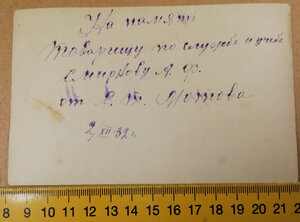 На память
товарищу по службе и учебе
Смирнову А. Ф.
от
2/XII 32 г.
8 9 10 11 12 13 14 15 16 17 18 19 20 21